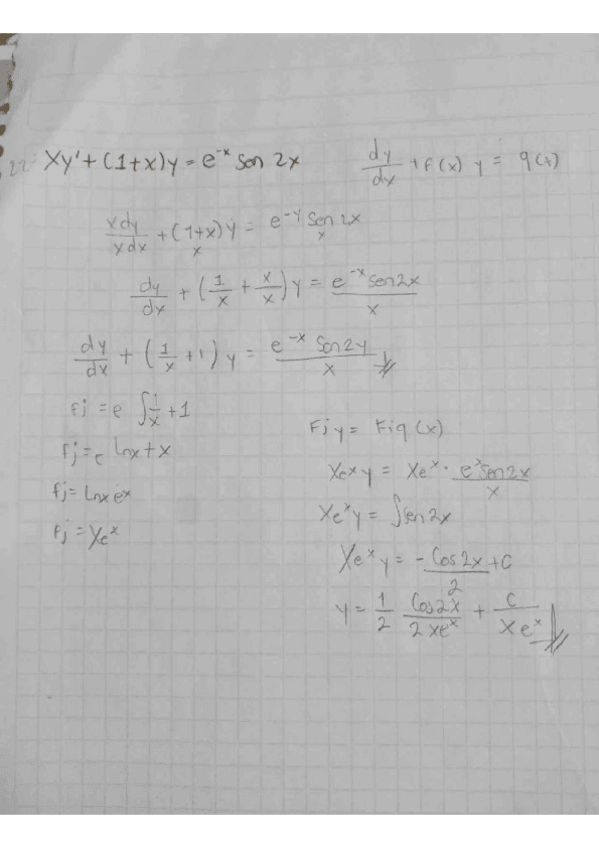 22. Xy' + (1+x)y = e^-x Sen 2x
dy/dx + f(x) y = q(x)
xdy/xdx + (1+x)y/x = e^-y Sen 2x/x
dy/dx + (1/x + x/x)y = e^-x sen2x/x
dy/dx + (1/x + 1)y = e^-x Sen 2y/x
Fj = e ∫1/x + 1
Fj = e lnx + x
Fj = Lnx e^x
Fj = Xe^x
Fj y = Fi q (x)
Xe^x y = Xe^x · e^x sen2x/x
Xe^x y = ∫sen 2x
Xe^x y = - Cos 2x/2 + C
y = 1/2 Cos2x/2xe^x + C/Xe^x